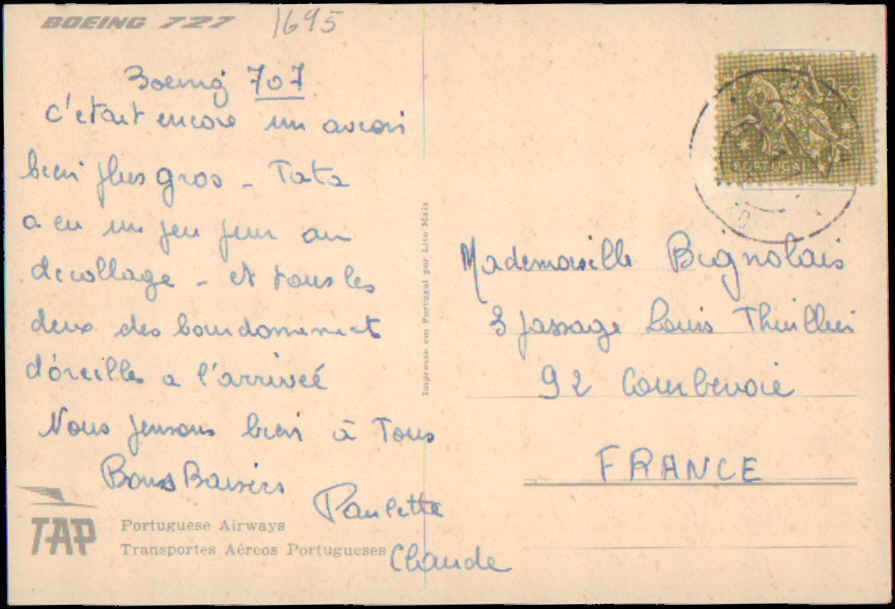 BOEING 727
1695
Boeing 707
C'etait encore un avion
bien plus gros - Tata
a eu un peu peur au
decollage - et tous les
deux des bourdonnement
d'oreille a l'arriveé
Nous pensons bien à Tous
Bons Baisers
Paulette
Claude
TAP
Portuguese Airways
Transportes Aéreos Portugueses
Impresso em Portugal por Lito Maia
Mademoiselle Bignolais
3 passage Louis Thuillier
92 Courbevoie
FRANCE